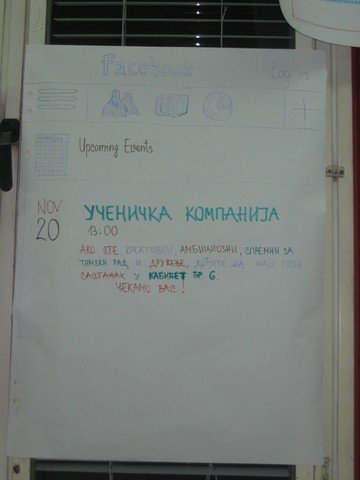 Facebook
Log in
Upcoming Events
NOV
20
УЧЕНИЧКА КОМПАНИЈА
13:00
АКО СТЕ КРЕАТИВНИ, АМБИЦИОЗНИ, СПРЕМНИ ЗА
ТИМСКИ РАД И ДРУЖЕЊЕ, ДОЂИТЕ НА НАШ ПРВИ
САСТАНАК У КАБИНЕТ БР 6.
ЧЕКАМО ВАС!